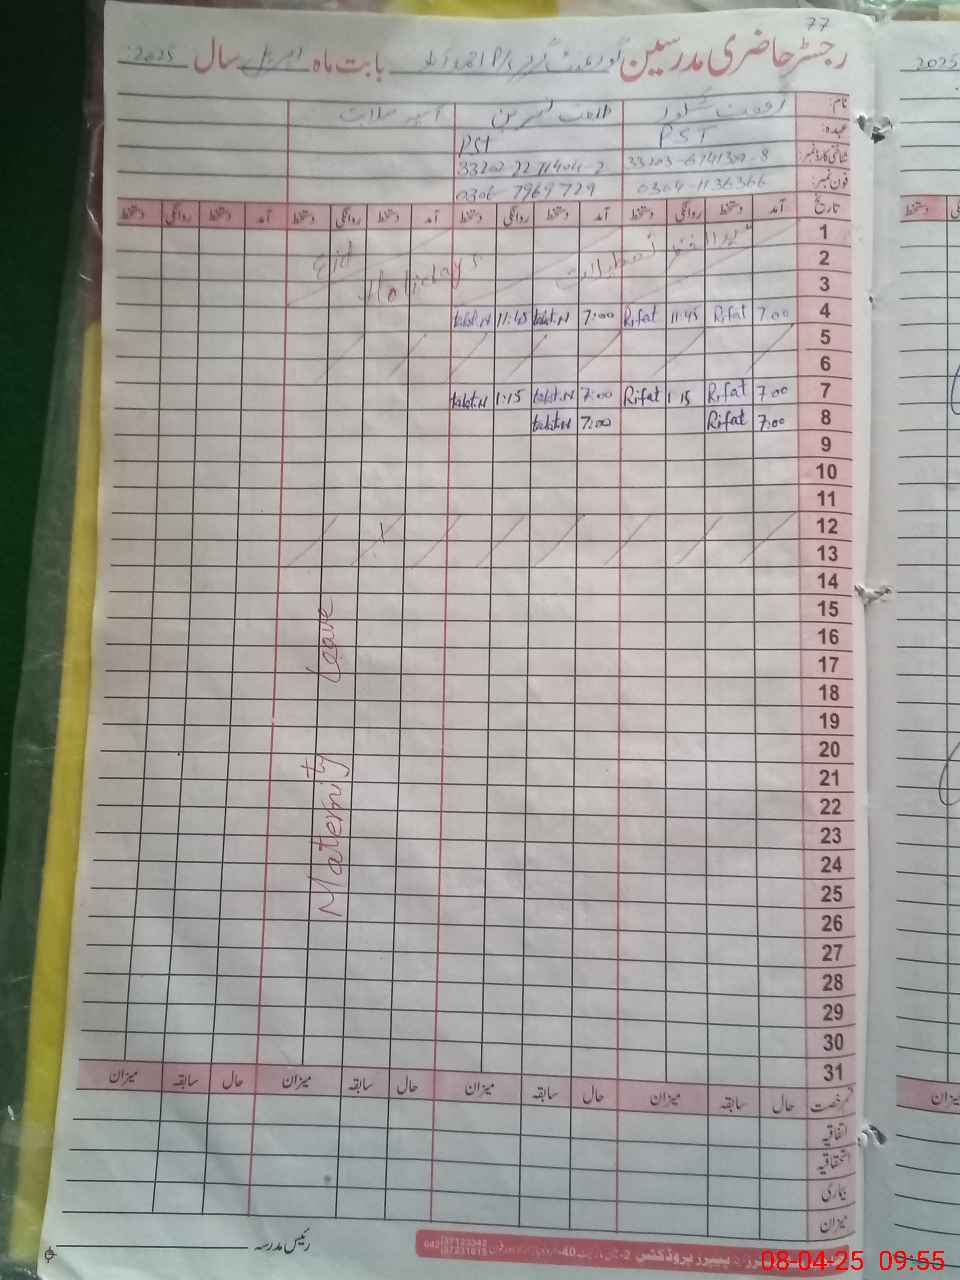 77
رجسٹر حاضری مدرسین گورنمنٹ گرلز P/S احمد آباد بابت ماہ اپریل سال 2025
نام: رفعت طلعت نسرین آسیہ
عہدہ: PST PST
شناختی کارڈ نمبر: 33203-6741302-8 33202-2271404-2
فون نمبر: 0304-1136366 0306-7969729
تاریخ آمد دستخط روانگی دستخط آمد دستخط روانگی دستخط آمد دستخط روانگی دستخط آمد دستخط روانگی دستخط
1
عید الفطر تعطیلات Eid
2
Holidays
3
4 7:00 Rifat 11:45 Rifat 7:00 talat.N 11:45 talat.N
5
6
7 7:00 Rifat 1:15 Rifat 7:00 talat.N 1:15 talat.N
8 7:00 Rifat 7:00 talat.N
9
10
11
12
13
14
15
16
17
18
19
20
21
22
23
24
25
26
27
28
29
30
31
Maternity Leave
قسم رخصت حال سابقہ میزان حال سابقہ میزان حال سابقہ میزان حال سابقہ میزان
اتفاقیہ
استحقاقیہ
بیماری
میزان
رئیس مدرسہ
پیپرز پروڈکٹس
042-37123342
37231615
2025
دستخط
میزان
08-04-25 09:55